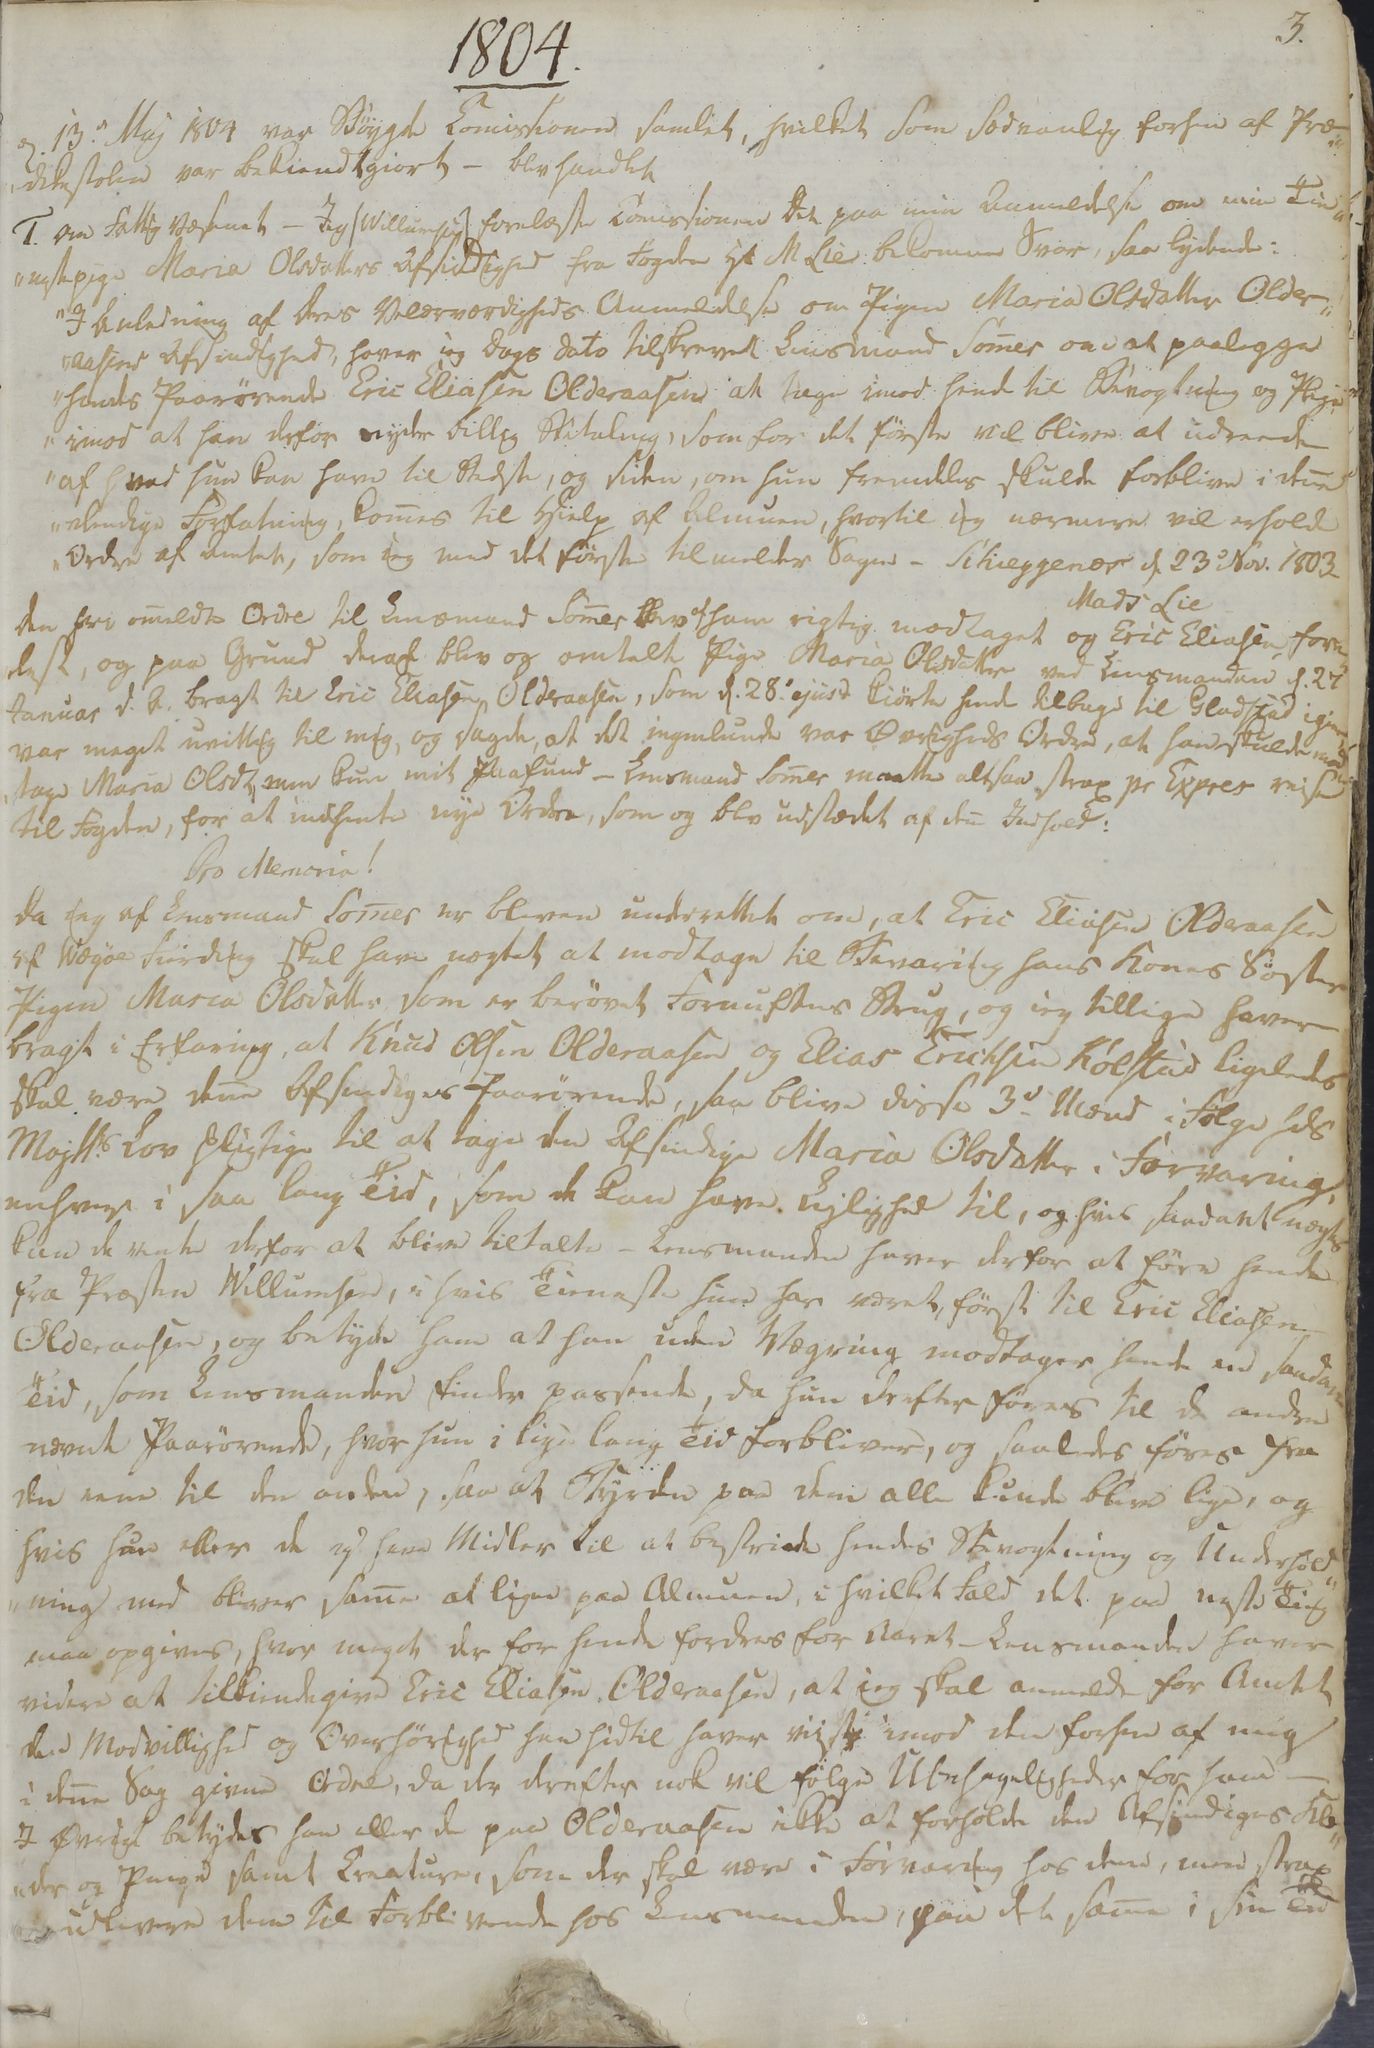 3.
1804.
d. 13de Maj 1804 var Bøygde Comissionen samlet, hvilket som sædvanlig forhen af Præ-
„dikestolen var bekiendtgiort – blev handlet
I. om Fattig Væsenet – Jeg [Willumsen] forelæste Comissionen det paa min Anmeldelse om min Tie-
„nestepige Maria Olsdatters Afsindighed fra Fogden Hr M Lie bekomne Svar, saa lydende:
„I Anledning af Deres Velærværdigheds Anmeldelse om Pigen Maria Olsdatter Older„
„aasens Afsindighed, haver jeg Dags dato tilskrevet Lensmand Somer om at paalegge
„hendes Paarørende Eric Eliasen Olderaasen at tage imod hende til Bevogtning og Pleje
„imod at han derfor nyder billig Betaling, som for det første vil blive at udreede
„af hvad hun kan have til Bedste, og siden, om hun fremdeles skulde forblive i den̄e
„elendige Forfatning, kom̄es til Hielp af Almuen, hvortil jeg nærmere vil erholde
„Ordre af Amtet, som jeg med det første tilmelder Sagen – Schieggenæs d. 23de Nov. 1803
Mads Lie
den her om̄eldte Ordre til Lensmand Som̄er blev af ham rigtig modtaget og Eric Eliasen fore-
læst, og paa Grund deraf blev og omtalte Pige Maria Olsdatter ved Lensmanden d. 27
Januar d. A. bragt til Eric Eliasen Olderaasen, som d. 28de ejusd kiørte hende tilbage til Gladstad igien
var meget uvittig til mig, og sagde, at det ingenlunde var Øvrigheds Ordre, at han skulde mod
„tage Maria Olsd., men kun mit Paafund – Lensmand Som̄er maatte altsaa strax pr Expres reise
til Fogden, for at indhente nye Ordre, som og blev udstædet af den̄e Indhold:
Pro Memoria!
Da jeg af Lensmand Som̄er er bleven underrettet om, at Eric Eliasen Olderaasen
af Wegøe Fiering skal have negtet at modtage til Bevaring hans Kones Søster
Pigen Maria Olsdatter som er berøvet Fornuftens Brug, og jeg tillige haver
bragt i Erfaring, at Knud Olsen Olderaasen og Elias Erichsen Kølstad ligeledes
skal være den̄e Afsindiges Paarørende, saa blive disse 3de Mænd i Følge Hds
Majtts Lov pligtige til at tage den Afsindige Maria Olsdatter i Forvaring,
enhver i saa lang Tid, som de kan have Lejlighed til, og hvis saadant negtes
kan de vente derfor at blive tiltalte – Lensmanden haver derfor at føre hende
fra Præsten Willumsen, i hvis Tieneste hun har været, først til Eric Eliasen
Olderaasen, og betyde ham at han uden Vægring modtager hende en saadan
Tid, som Lensmanden finder passende, da hun derefter føres til de andre
nævnte Paarørende, hvor hun i lige lang Tid forbliver, og saaledes føres fra
den eene til den anden, saa at Byrden paa dem alle kunde blive lige, og
hvis hun eller de ej have Midler til at bestride hendes Bevogtning og Underhold„
„ning med bliver sam̄e at ligne paa Almuen, i hvilket Fald det paa neste Ting
maa opgives, hvor meget der for hende fordres for Aaret – Lensmanden haver
videre at tilkiendegive Eric Eliasen Olderaasen, at jeg skal anmelde for Amtet
den Modvillighed og Overhørighed han hidtil haver viist imod den forhen af mig
i den̄e Sag givne Ordre, da der derefter nok vil følge Ubehageligheder for ham –
I Øvrigt betydes han eller de paa Olderaasen ikke at forholde den Afsindiges Klæ„
„der og Penge samt Creature, som der skal være i Forvaring hos dem, men strax
udlevere dem til Forblivende hos Lensmanden, paa det sam̄e i sin Tid